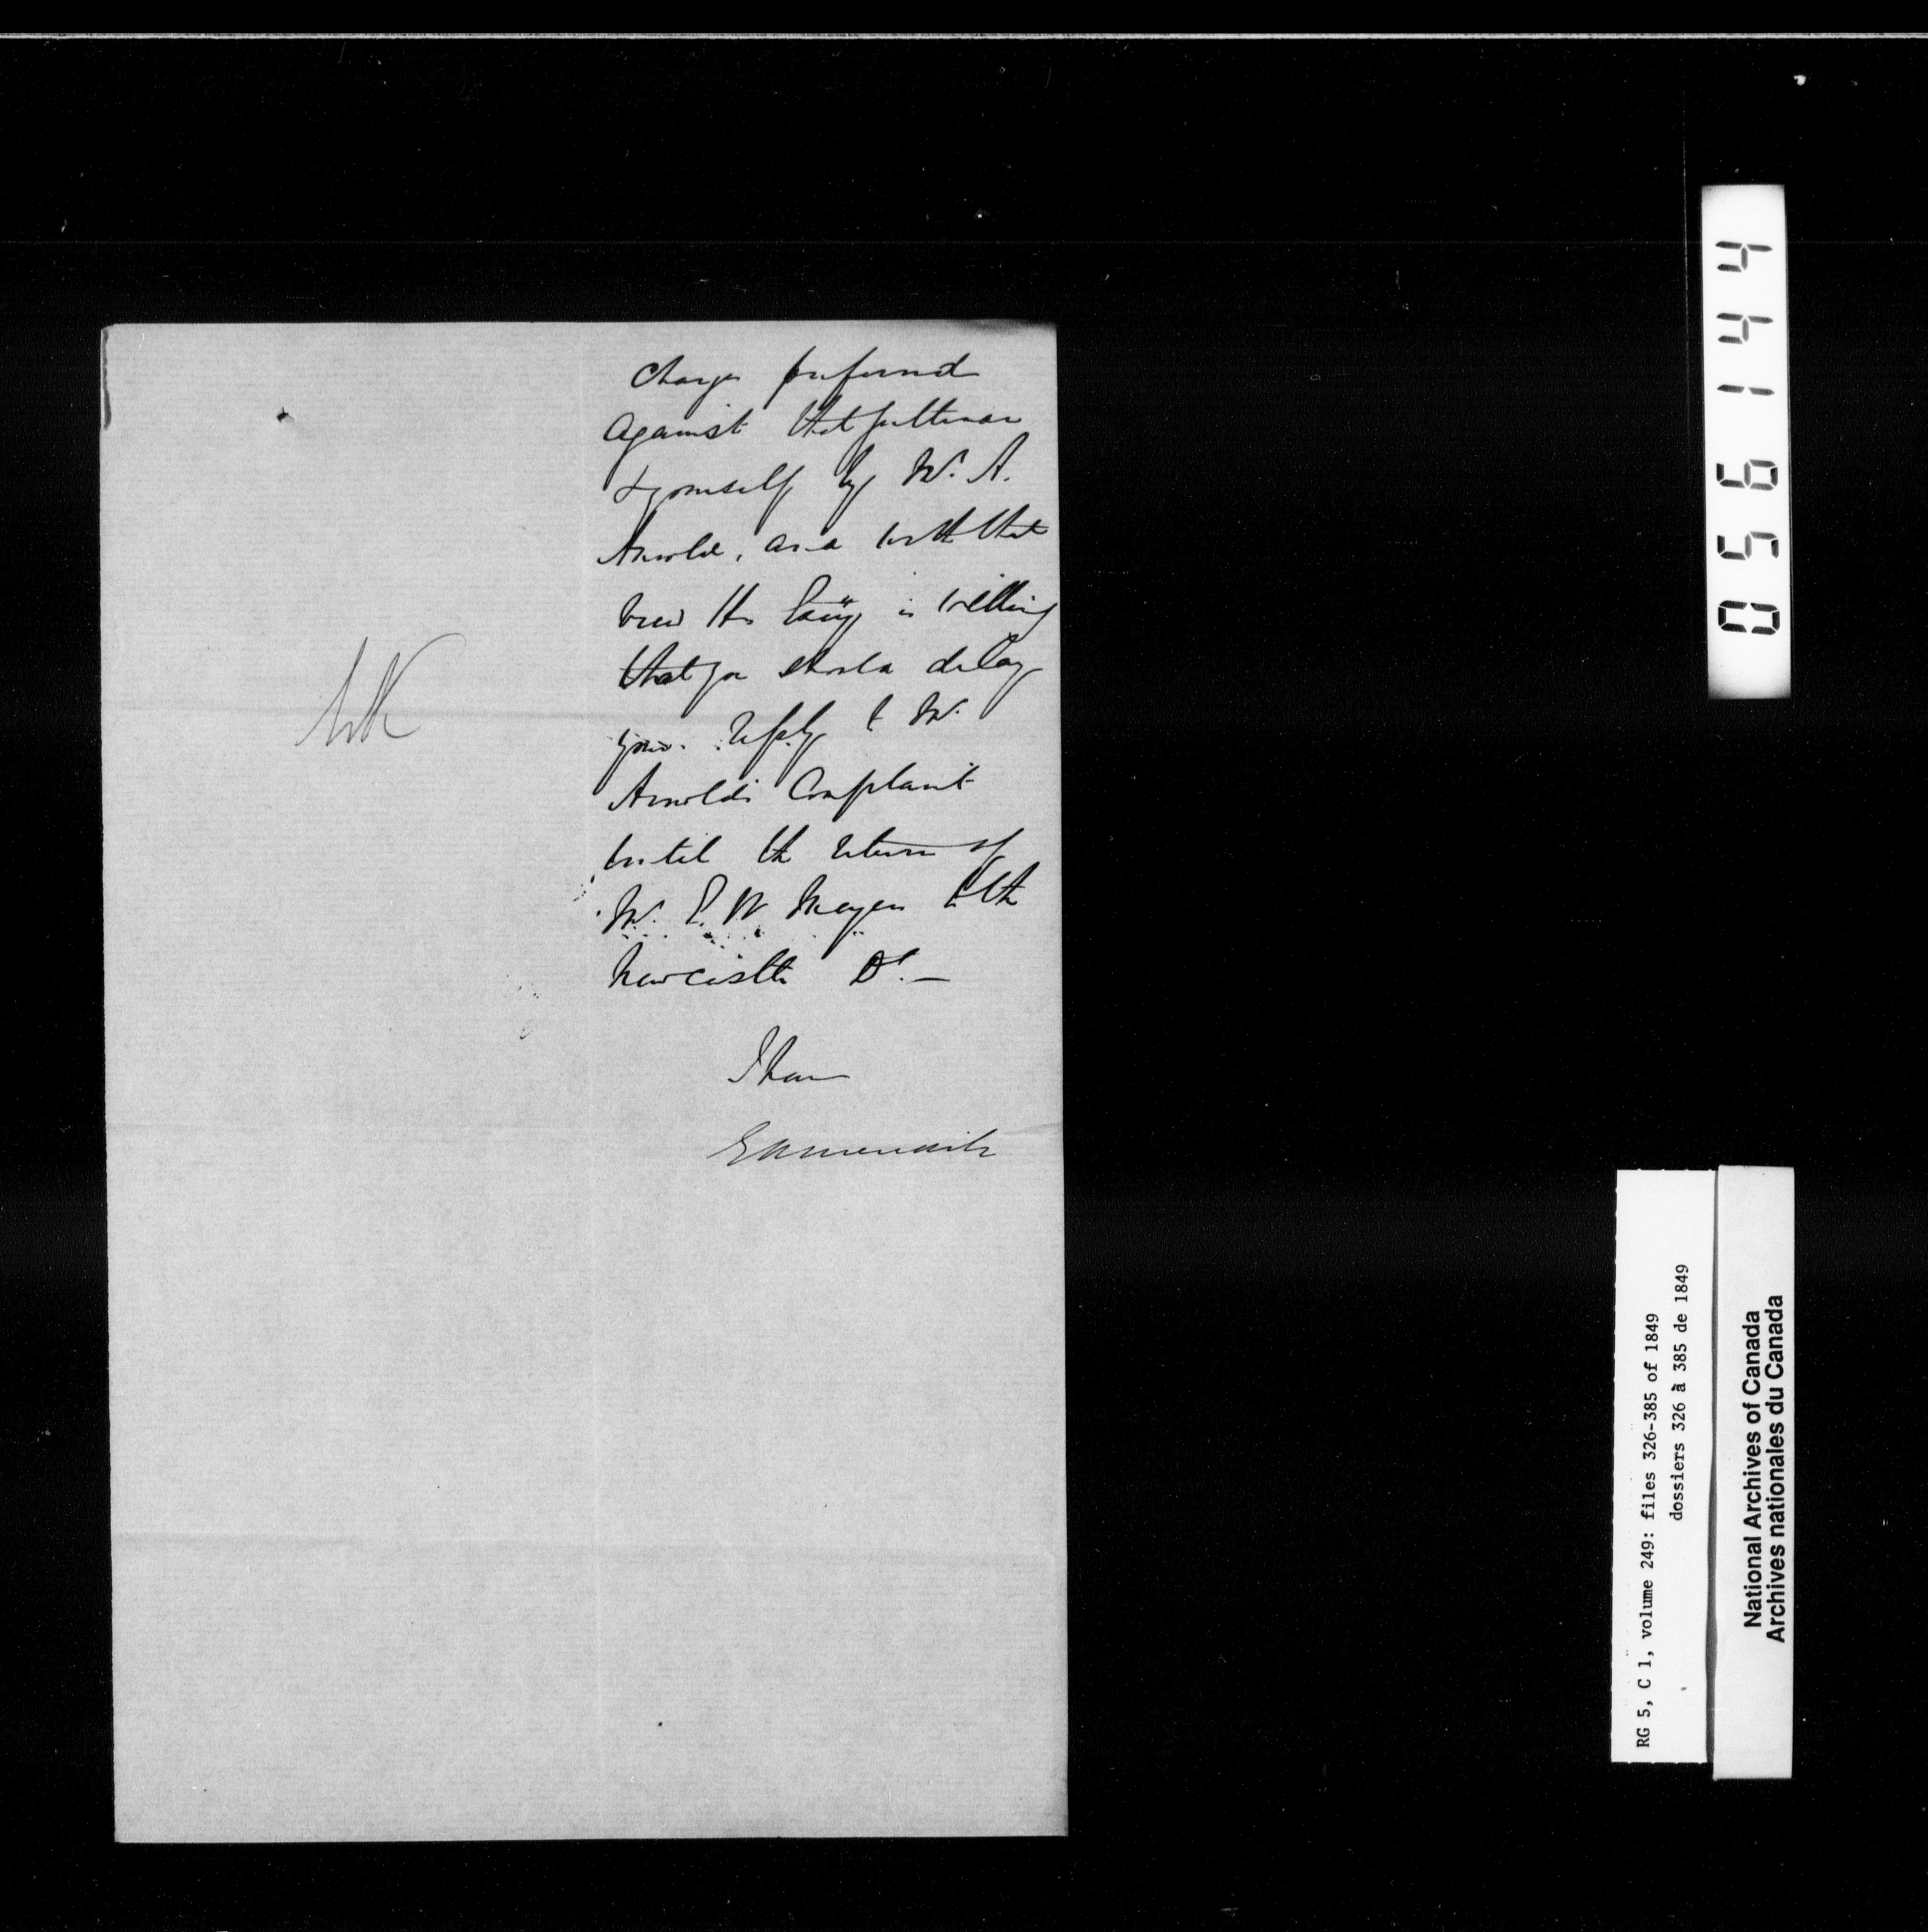 Charges preferred
against that gentleman
& yourself by Mr. A.
Arnold, and with that
view His Excy is willing
that you should delay
your reply to Mr.
Arnold's Complaint
until the return of
Mr. E. W. Meyers to the
Newcastle Dt. —
I have
WK
056144
RG 5, C 1, volume 249: files 326-385 of 1849
dossiers 326 à 385 de 1849
National Archives of Canada
Archives nationales du Canada